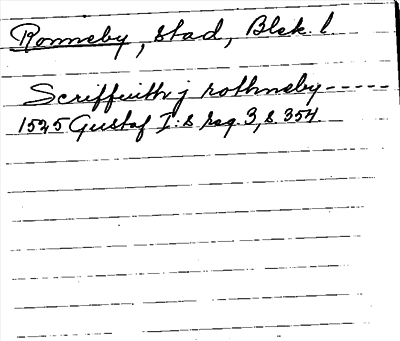 Ronneby, Stad, Blek. l
Scriffuith j rothnneby-----
1525 Gustaf I:s reg. 3, s. 354